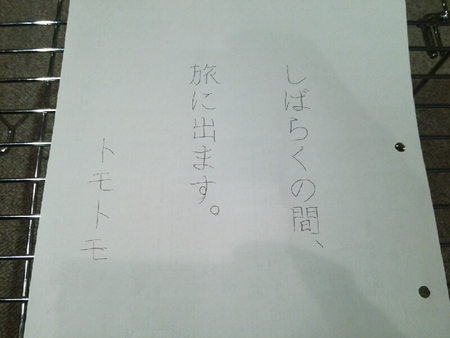 しばらくの間、
旅に出ます。
トモトモ